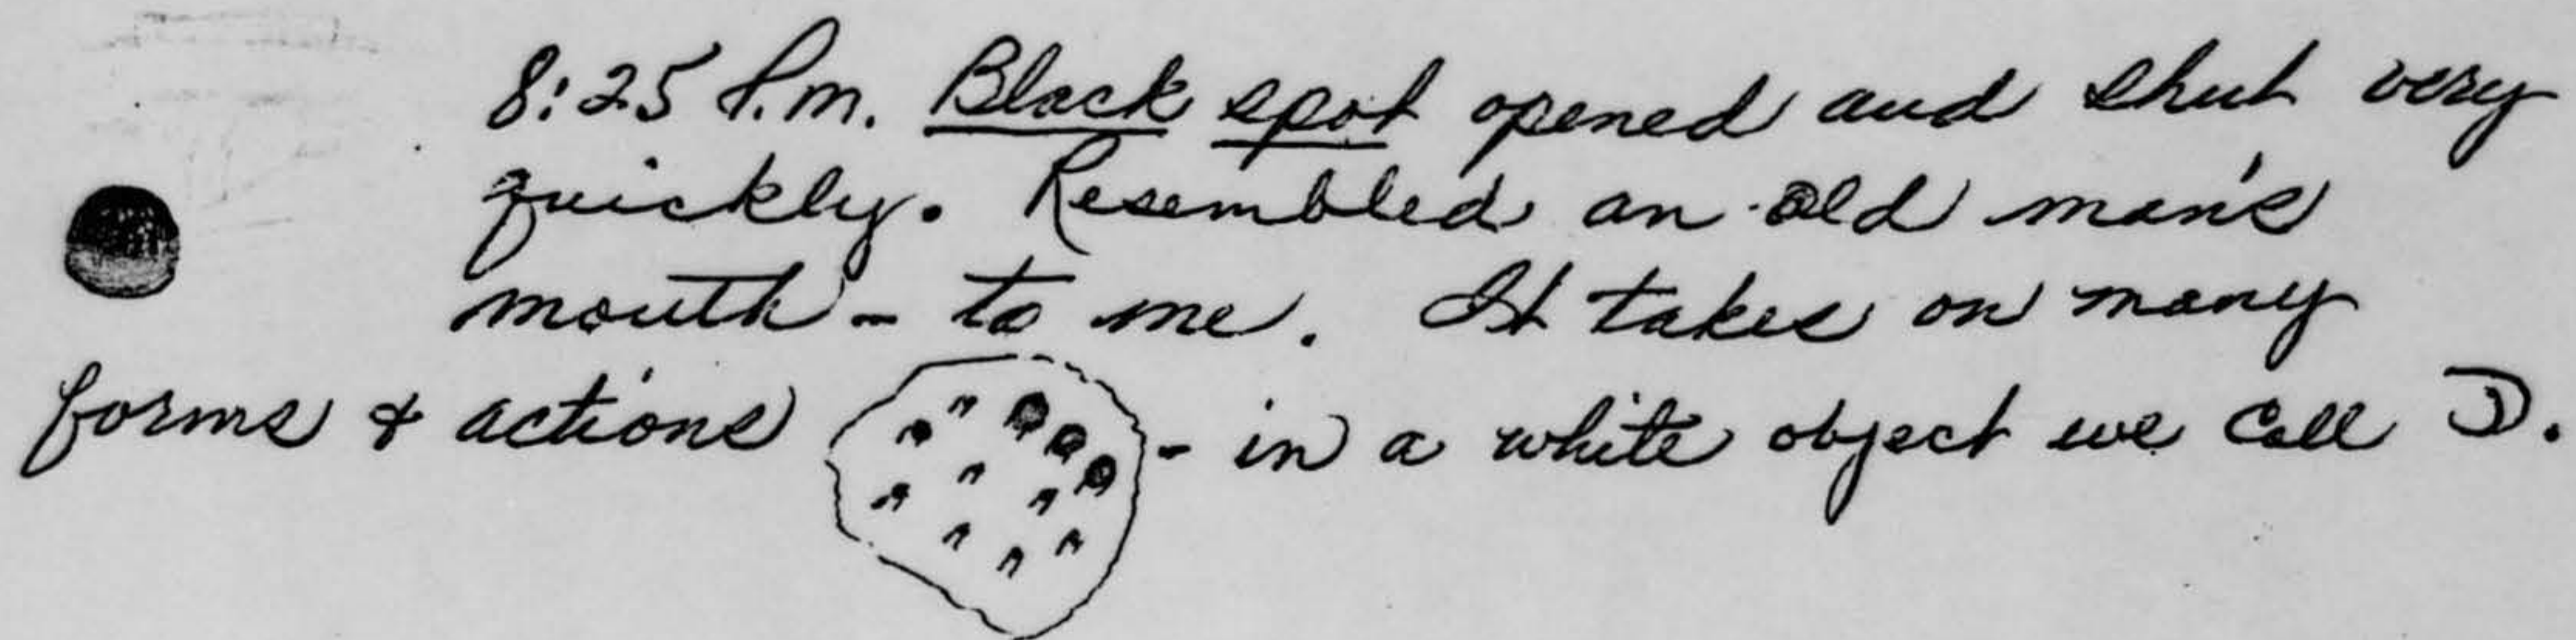 8:25 P.m. Black spot opened and shut very
quickly. Resembled an old man's
mouth - to me. It takes on many
forms & actions - in a white object we call D.